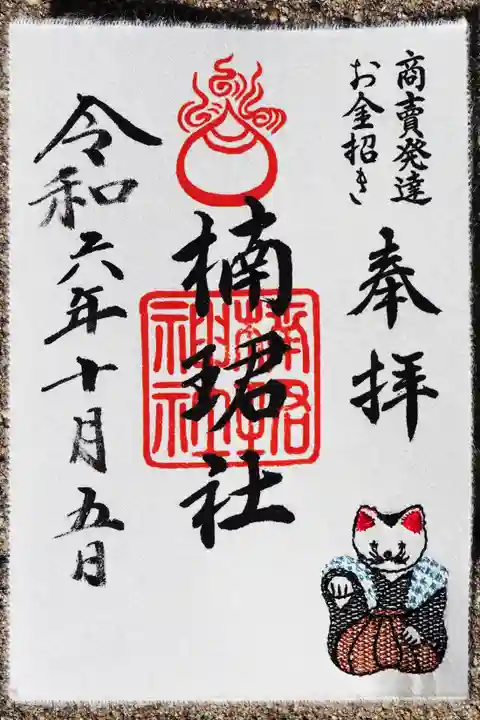 商賣発達
お金招き
奉拝
楠珺社
令和六年十月五日